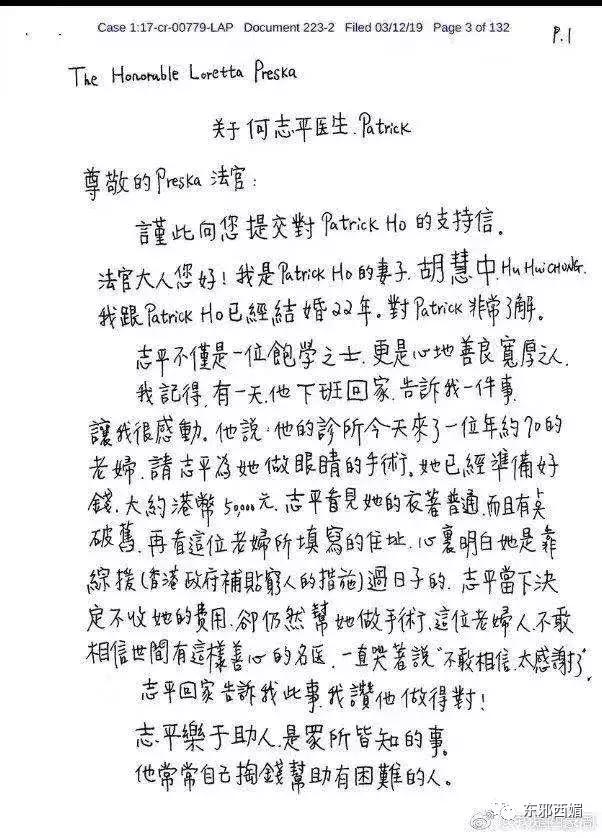 Case 1:17-cr-00779-LAP Document 223-2 Filed 03/12/19 Page 3 of 132
P.1
The Honorable Loretta Preska
关于何志平医生.Patrick
尊敬的Preska法官:
謹此向您提交對Patrick Ho的支持信。
法官大人您好!我是Patrick Ho的妻子,胡慧中.Hu HuiCHONG.
我跟Patrick Ho已經結婚22年。對Patrick非常了解。
志平不僅是一位飽學之士,更是心地善良寬厚之人.
我記得,有一天,他下班回家,告訴我一件事,
讓我很感動。他説:他的診所今天來了一位年約70的
老婦,請志平為她做眼睛的手術。她已經準備好
錢,大約港幣50,000元,志平看見她的衣著普通,而且有点
破舊,再看這位老婦所填寫的住址,心裏明白她是靠
綜援(香港政府補貼窮人的措施)過日子的,志平當下決
定不收她的費用,卻仍然幫她做手術,這位老婦人,不敢
相信世間有這樣善心的名医,一直哭著説"不敢相信,太感謝了"
志平回家告訴我此事,我讚他做得對!
志平樂于助人,是眾所皆知的事。
他常常自己掏錢幫助有困難的人。
东邪西媚